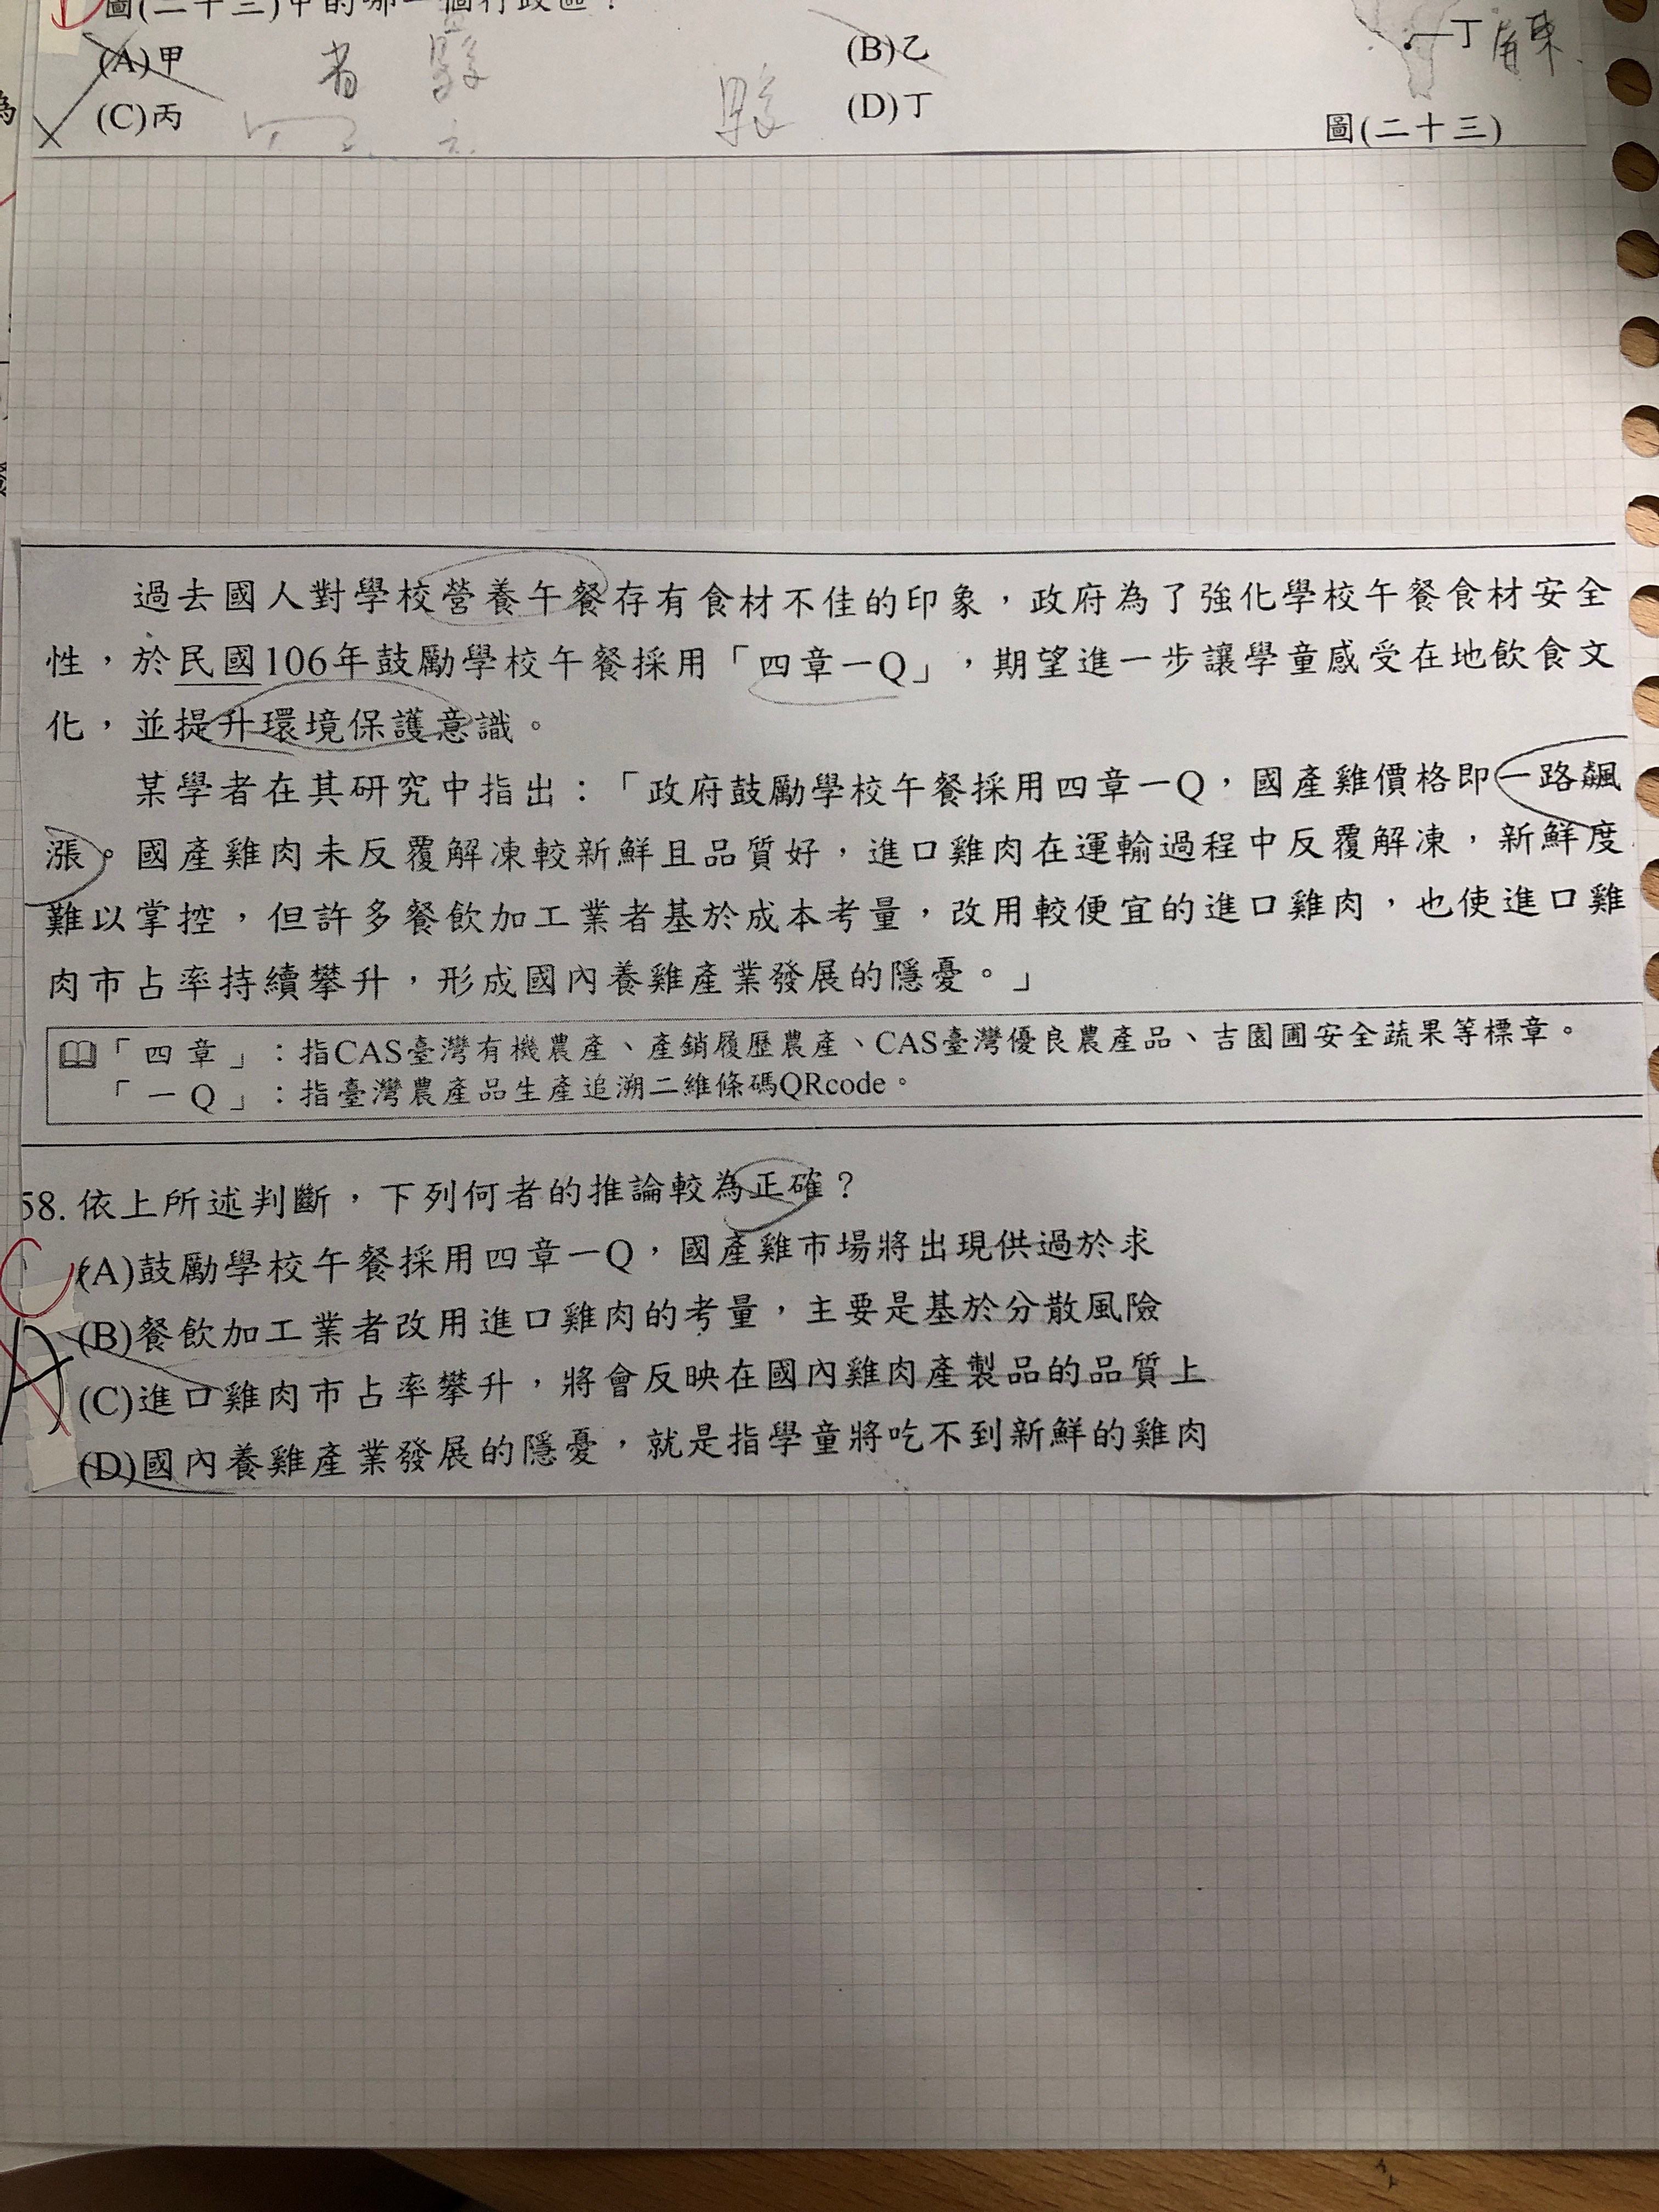 圖(二十三)中的哪一個行政區？
(A)甲
(B)乙
(C)丙
(D)丁
省 縣
縣
丁 屏東
圖(二十三)
過去國人對學校營養午餐存有食材不佳的印象，政府為了強化學校午餐食材安全
性，於民國106年鼓勵學校午餐採用「四章一Q」，期望進一步讓學童感受在地飲食文
化，並提升環境保護意識。
某學者在其研究中指出：「政府鼓勵學校午餐採用四章一Q，國產雞價格即一路飆
漲。國產雞肉未反覆解凍較新鮮且品質好，進口雞肉在運輸過程中反覆解凍，新鮮度
難以掌控，但許多餐飲加工業者基於成本考量，改用較便宜的進口雞肉，也使進口雞
肉市占率持續攀升，形成國內養雞產業發展的隱憂。」
「四章」：指CAS臺灣有機農產、產銷履歷農產、CAS臺灣優良農產品、吉園圃安全蔬果等標章。
「一Q」：指臺灣農產品生產追溯二維條碼QRcode。
58. 依上所述判斷，下列何者的推論較為正確？
C
(A)鼓勵學校午餐採用四章一Q，國產雞市場將出現供過於求
(B)餐飲加工業者改用進口雞肉的考量，主要是基於分散風險
A
(C)進口雞肉市占率攀升，將會反映在國內雞肉產製品的品質上
(D)國內養雞產業發展的隱憂，就是指學童將吃不到新鮮的雞肉